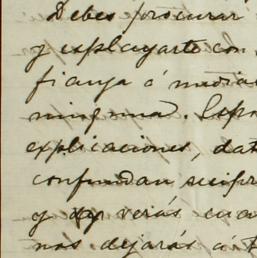 Debes procurar
y explayarte con
fianza ó media
ninguna.
explicaciones, dat
confundan
y verás cua
nos dejarás a